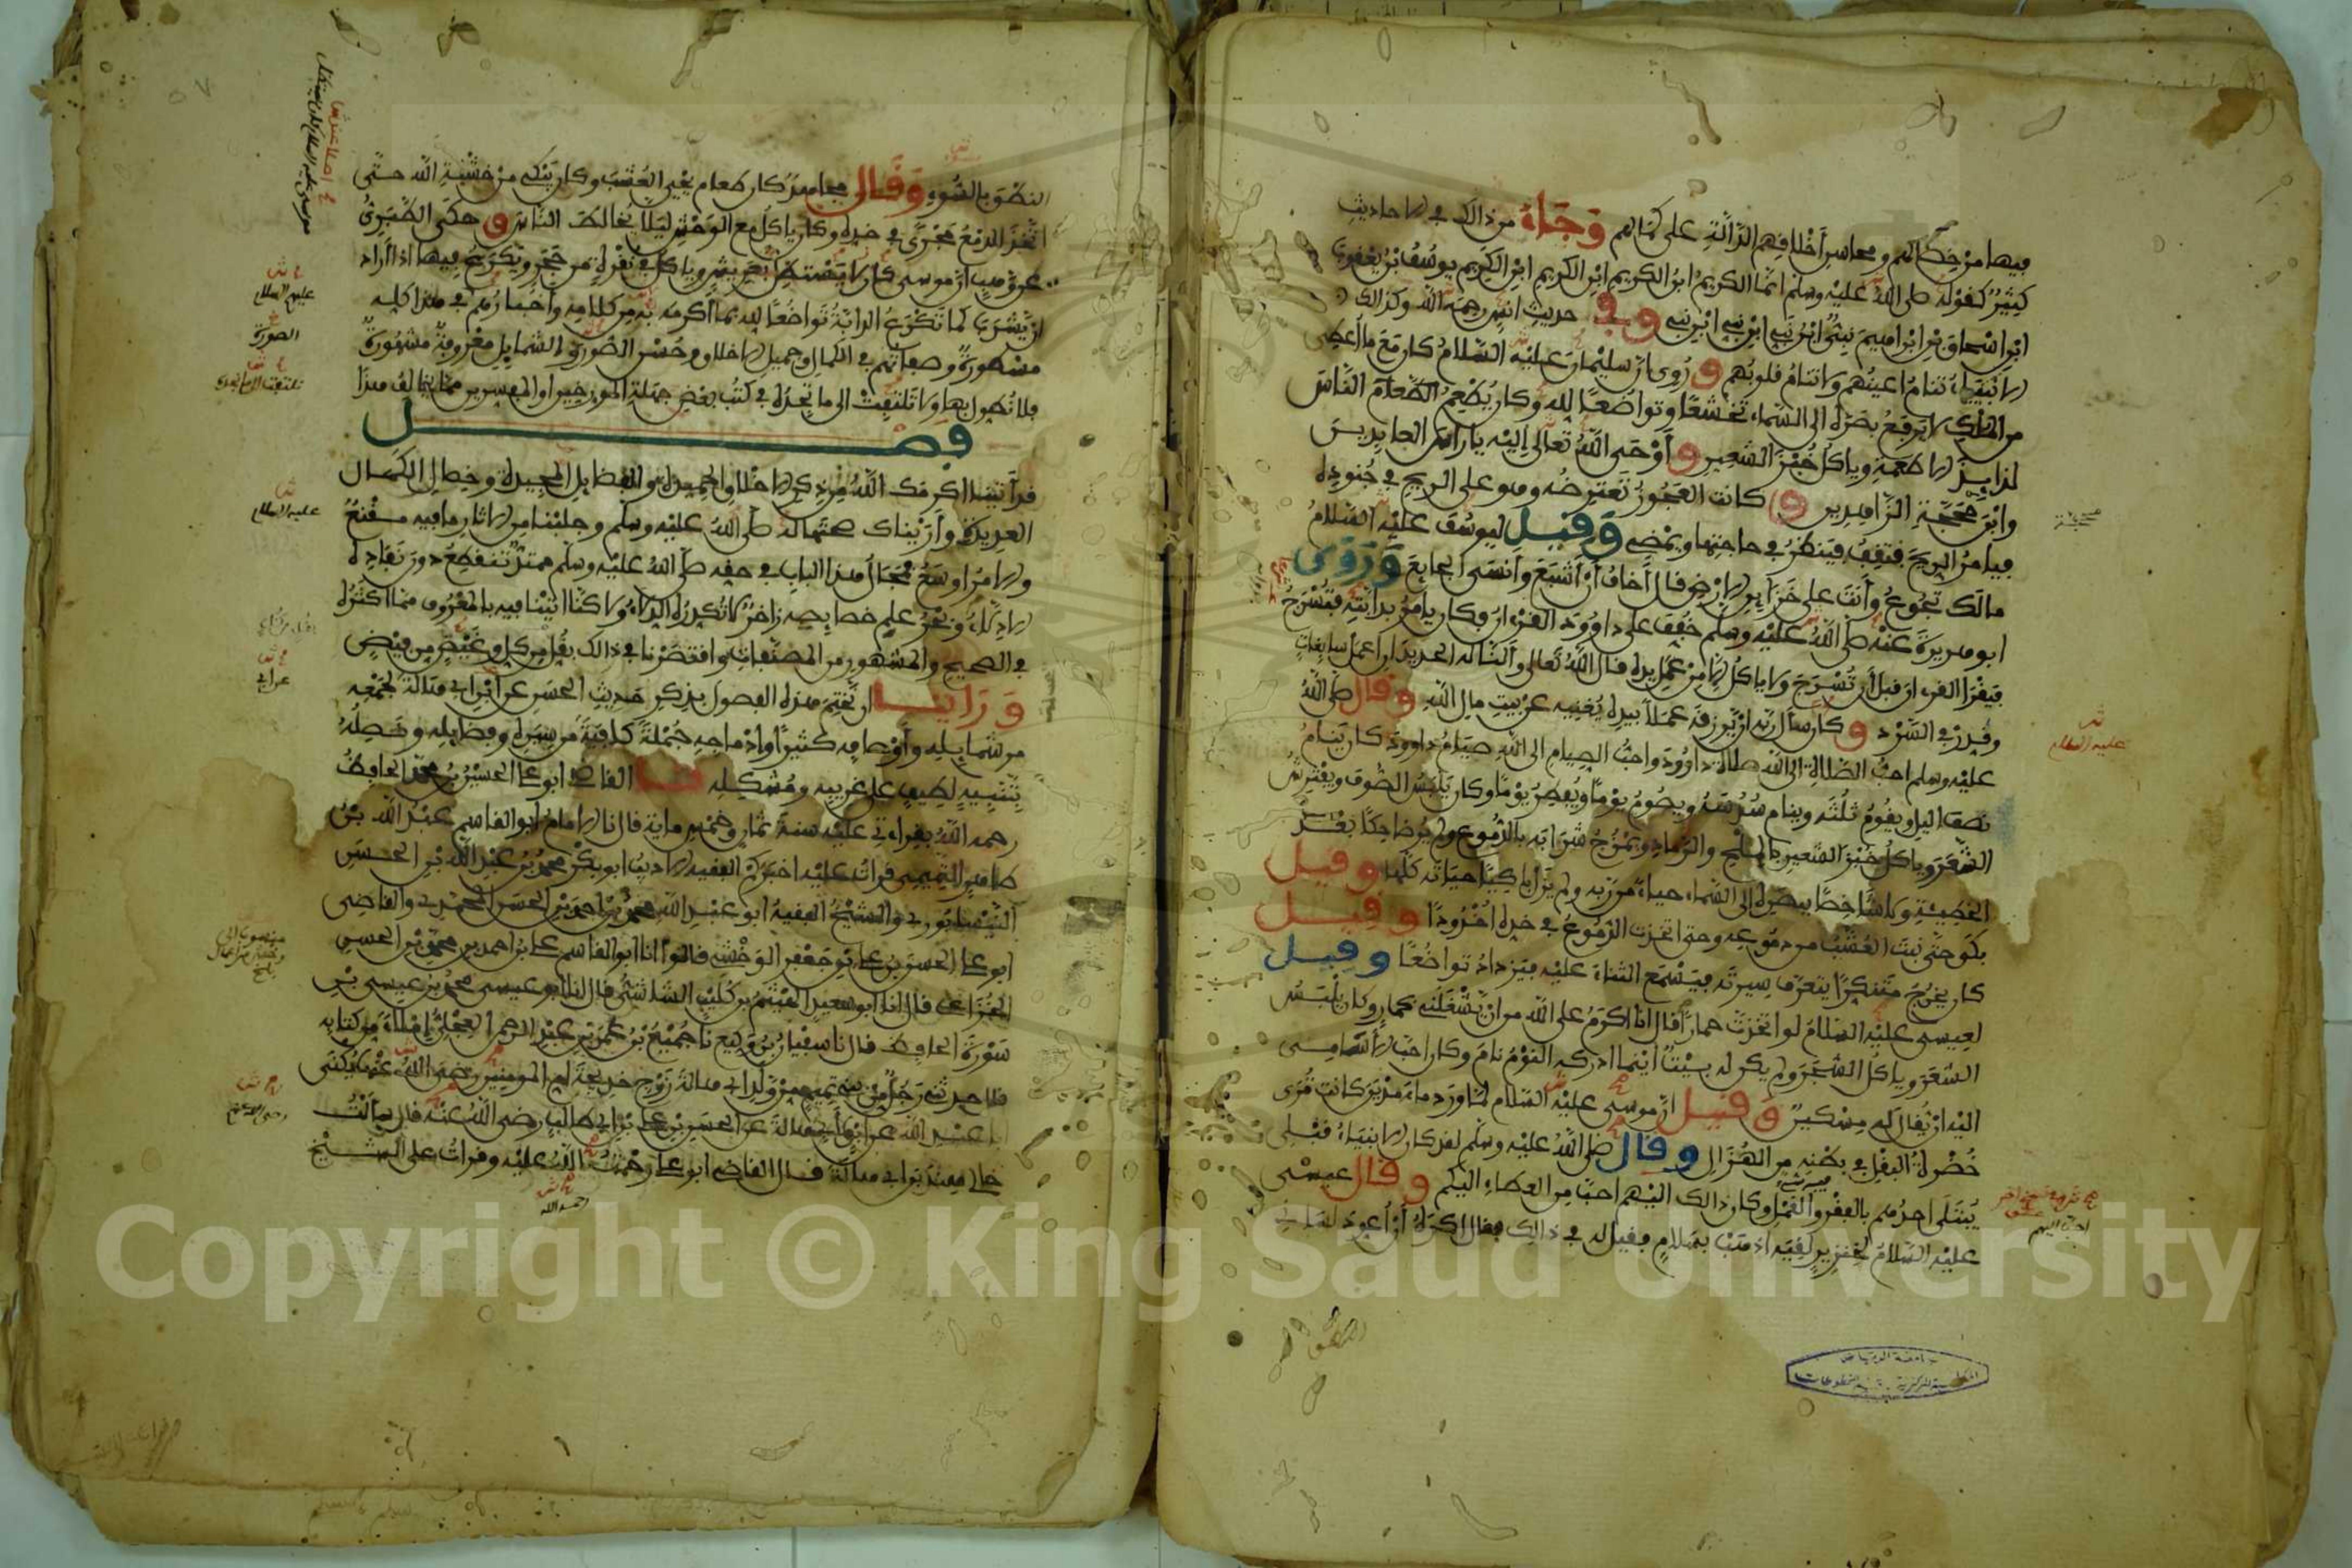 فيها من خصالهم ومحاسن أخلاقهم الدالة على كمالهم وجاء من ذالك في الاحاديث
كثير كقوله صلى الله عليه وسلم انما الكريم ابن الكريم ابن الكريم ابن الكريم يوسف بن يعقوب
ابن اسحاق بن ابراهيم نبي ابن نبي ابن نبي ابن نبي وفي حديث انس رحمه الله وكذالك
الانبياء تنام اعينهم ولا تنام قلوبهم وروي ان سليمان عليه السلام كان مع ما أعطي
من الملك لا يرفع بصره الى السماء تخشعا وتواضعا لله وكان يطعم الطعام الناس
لذايذ الاطعمة وياكل خبز الشعير وأوحى الله تعالى إليه يا راس العابدين
وابن محجة الزاهدين و كانت العجوز تعترضه وهو على الريح في جنوده
فيامر الريح فتقف فينظر في حاجتها ويمضي وقيل ليوسف عليه السلام
مالك تجوع وأنت على خزاين الارض قال أخاف أن أشبع وأنسى الجايع وروى
ابو هريرة عنه صلى الله عليه وسلم خفف على داوود القرءان فكان يأمر بدابته فتسرج
فيقرا القرءان قبل أن تسرج ولا ياكل الا من عمل يده قال الله تعالى وألنا له الحديد ان اعمل سابغات
وقدر في السرد وكان سأل ربه ان يرزقه عملا بيده يغنيه عن بيت مال الله وقال صلى الله
عليه وسلم احب الصلاة الى الله صلاة داوود واحب الصيام الى الله صيام داوود كان ينام
نصف اليل ويقوم ثلثه وينام سدسه ويصوم يوما ويفطر يوما وكان يلبس الصوف ويفترش
الشعر وياكل خبز الشعير بالملح والرماد ويمزج شرابه بالدموع ولم ير ضاحكا بعد
الخطيئة ولا شاخصا ببصره الى السماء حياء من ربه ولم يزل باكيا حياته كلها وقيل
بكى حتى نبت العشب من دموعه وحتى اتخذت الدموع في خده اخدودا وقيل
كان يخرج متنكرا يتعرف سيرته فيسمع الثناء عليه فيزداد تواضعا وقيل
لعيسى عليه السلام لو اتخذت حمارا قال انا اكرم على الله من ان يشغلني بحمار وكان يلبس
الشعر وياكل الشجر ولم يكن له بيت اينما ادركه النوم نام وكان احب الاسامي
اليه ان يقال له مسكين وقيل ان موسى عليه السلام لما ورد ماء مدين كانت ترى
خضرة البقل في بطنه من الهزال وقال صلى الله عليه وسلم لقد كان الانبياء قبلي
يبتلى احدهم بالفقر والقمل وكان ذالك اليهم احب من العطاء اليكم وقال عيسى
عليه السلام لخنزير لقيه اذهب بسلام فقيل له في ذالك فقال اكره أن أعود لساني
عليه السلام
احب اليهم
جامعة الرياض
النطق بالسوء وقال مجاهد كان طعام يحيى العشب وكان يبكي من خشية الله حتى
اتخذ الدمع مجرى في خده وكان ياكل مع الوحش ليلا يخالط الناس وحكى الطبري
عن وهب ان موسى كان يستظل بعريش وياكل في نقرة من حجر ويكرع فيها اذا أراد
ان يشرب كما تكرع الدابة تواضعا لله بما اكرمه به من كلامه وأخبارهم في هذا كله
مسطورة وصفاتهم في الكمال وجميل الاخلاق وحسن الصورة والشمايل معروفة مشهورة
فلا نطول بها ولا تلتفت الى ما تجده في كتب بعض جهلة المورخين والمفسرين مما يخالف هذا
فصل
قد أتيناك اكرمك الله من ذكر الاخلاق الحميدة والفضايل المجيدة وخصال الكمال
العديدة وأريناك صحتها له صلى الله عليه وسلم وجلبنا من الاثار ما فيه مقنع
والامر اوسع فمجال هذا الباب في حقه صلى الله عليه وسلم ممتد تنقطع دون نفاده
الادلاء وبحر علم خصايصه زاخر لا تكدره الدلاء ولا كنا اتينا فيه بالمعروف مما اكثره
في الصحيح والمشهور من المصنفات واقتصرنا في ذالك بقل من كل وغيض من فيض
ورأينا ان نختم هذه الفصول بذكر حديث الحسن عن ابن ابي هالة لجمعه
من شمايله وأوصافه كثيرا وادماجه جملة كافية من سيره وفضايله ونصله
بتنبيه لطيف على غريبه ومشكله القاضي ابو علي الحسين بن محمد الحافظ
رحمه الله بقراءتي عليه سنة ثمان وخمس ماية قال نا الامام ابو القاسم عبد الله بن
طاهر التميمي قرات عليه اخبركم الفقيه الاديب ابو بكر محمد بن عبد الله بن الحسن
النيسابوري والشيخ الفقيه ابو عبد الله محمد بن احمد بن الحسن المحمدي والقاضي
ابو علي الحسن بن علي بن جعفر الوخشي قالوا انا ابو القاسم علي بن احمد بن محمد بن الحسن
الخزاعي قال انا ابو سعيد الهيثم بن كليب الشاشي قال انا ابو عيسى محمد بن عيسى بن
سورة الحافظ قال نا سفيان بن وكيع نا جميع بن عمر بن عبد الرحمن العجلي املاء من كتابه
قال حدثني رجل من بني تميم من ولد ابي هالة زوج خديجة ام المومنين رضي الله عنها يكنى
ابا عبد الله عن ابن لابي هالة عن الحسن بن علي بن ابي طالب رضي الله عنه قال سألت
خالي هند بن ابي هالة قال القاضي ابو علي رحمت الله عليه وقرات على الشيخ
عليه السلام
رحمه الله
Copyright © King Saud University